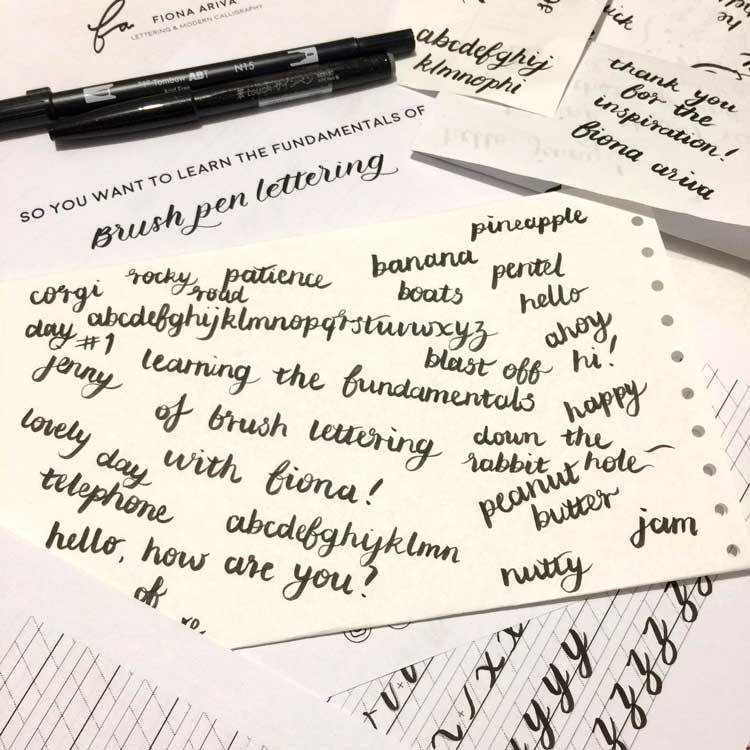 fa
FIONA ARIVA
LETTERING & MODERN CALLIGRAPHY
Tombow ABT N15
abcdefghij
klmnophi
thank you
for the
inspiration!
fiona ariva
SO YOU WANT TO LEARN THE FUNDAMENTALS OF
Brush pen lettering
pineapple
corgi rocky patience banana pentel
road boats hello
day abcdefghijklmnopqrstuvwxyz ahoy
#1 blast off hi!
jenny learning the fundamentals happy
of brush lettering down the
lovely day with fiona! rabbit hole
telephone peanut
butter
abcdefghijklmn jam
hello, how are you? nutty
of
xx
yyyy
zzzzz